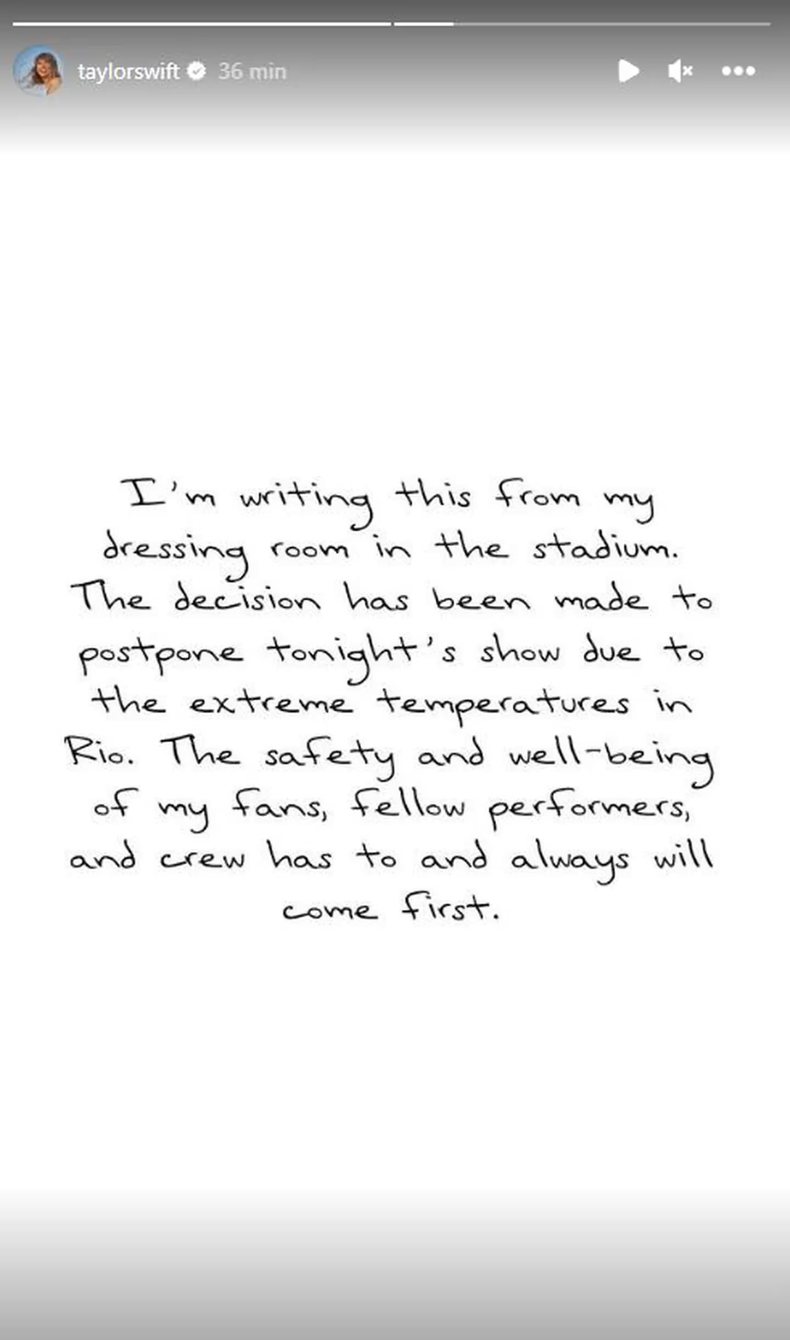 taylorswift 36 min
I'm writing this from my
dressing room in the stadium.
The decision has been made to
postpone tonight's show due to
the extreme temperatures in
Rio. The safety and well-being
of my fans, fellow performers,
and crew has to and always will
come first.